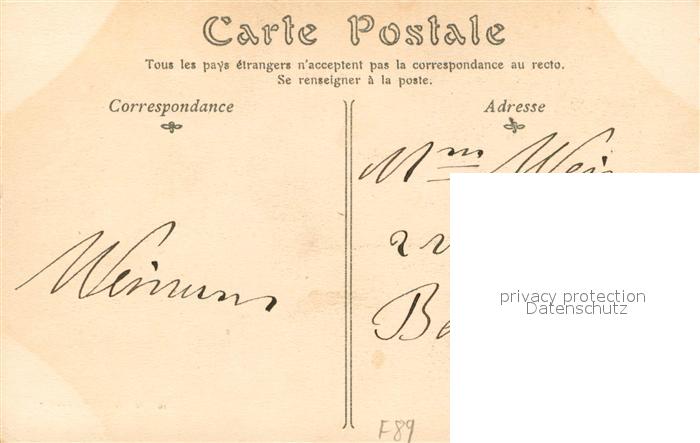 Carte Postale
Tous les pays étrangers n'acceptent pas la correspondance au recto.
Se renseigner à la poste.
Correspondance
Adresse
Mme
22
privacy protection
Datenschutz
F89